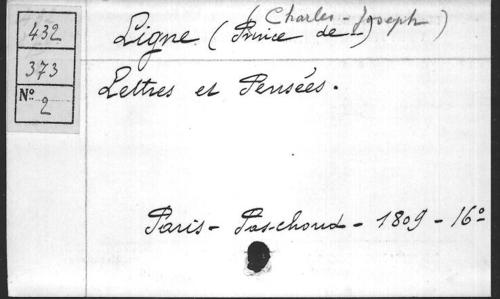 432
373
Nº
2
Ligne (Prince de -) Charles-Joseph )
Lettres et Pensées.
Paris - Paschoud - 1809 - 16º